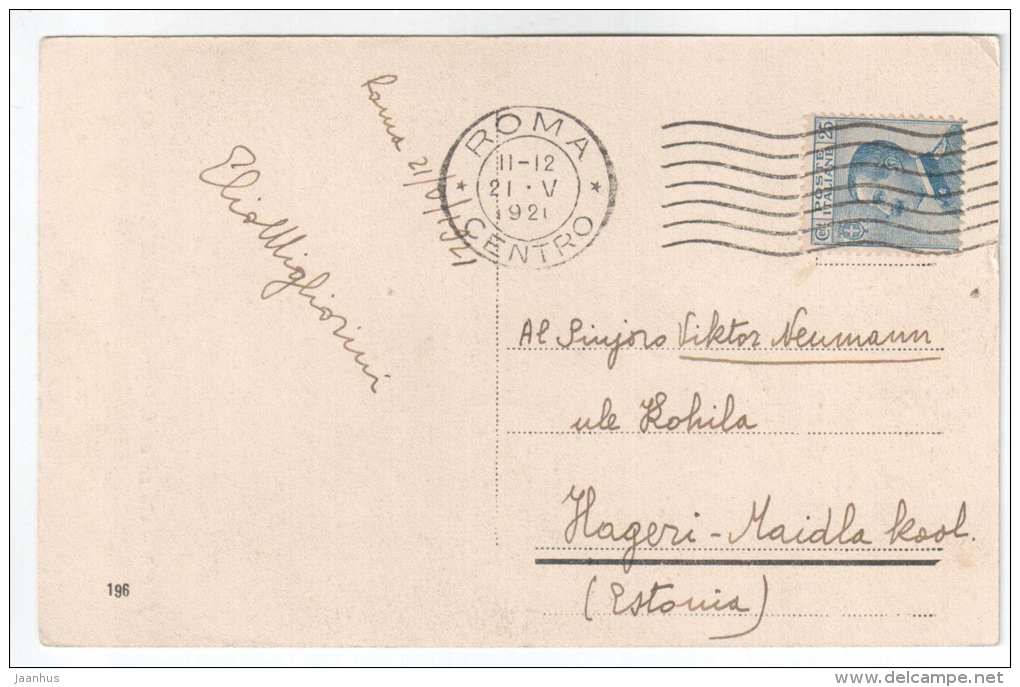 Roma 21/V/1921
Elio Migliorini
ROMA
11-12
21 · V
1921
CENTRO
POSTE
ITALIANE
Ct 25
Al Sinjoro Viktor Neumann
ule Kohila
Hageri-Maidla kool.
(Estonia)
196
jaanhus
delcampe.net